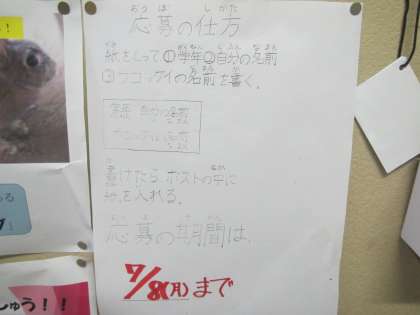 応募の仕方
紙をとって①学年②自分の名前
③ウコッケイの名前を書く。
学年 自分の名前
ウコッケイの名前
書けたら、ポストの中に
紙を入れる。
応募の期間は、
7/8(月)まで
しゅう!!